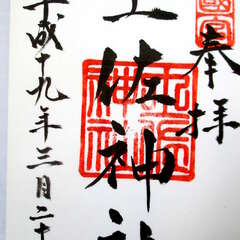 奉拝
土佐神社
平成十九年三月二十